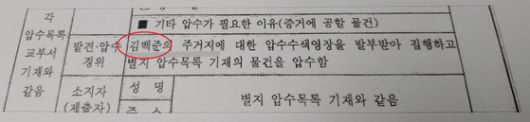 ■ 기타 압수가 필요한 이유(증거에 공할 물건)
각
압수목록
교부서
기재와
같음
발견·압수
경위
김백준의 주거지에 대한 압수수색영장을 발부받아 집행하고
별지 압수목록 기재의 물건을 압수함
소지자
(제출자)
성 명
주 소
별지 압수목록 기재와 같음